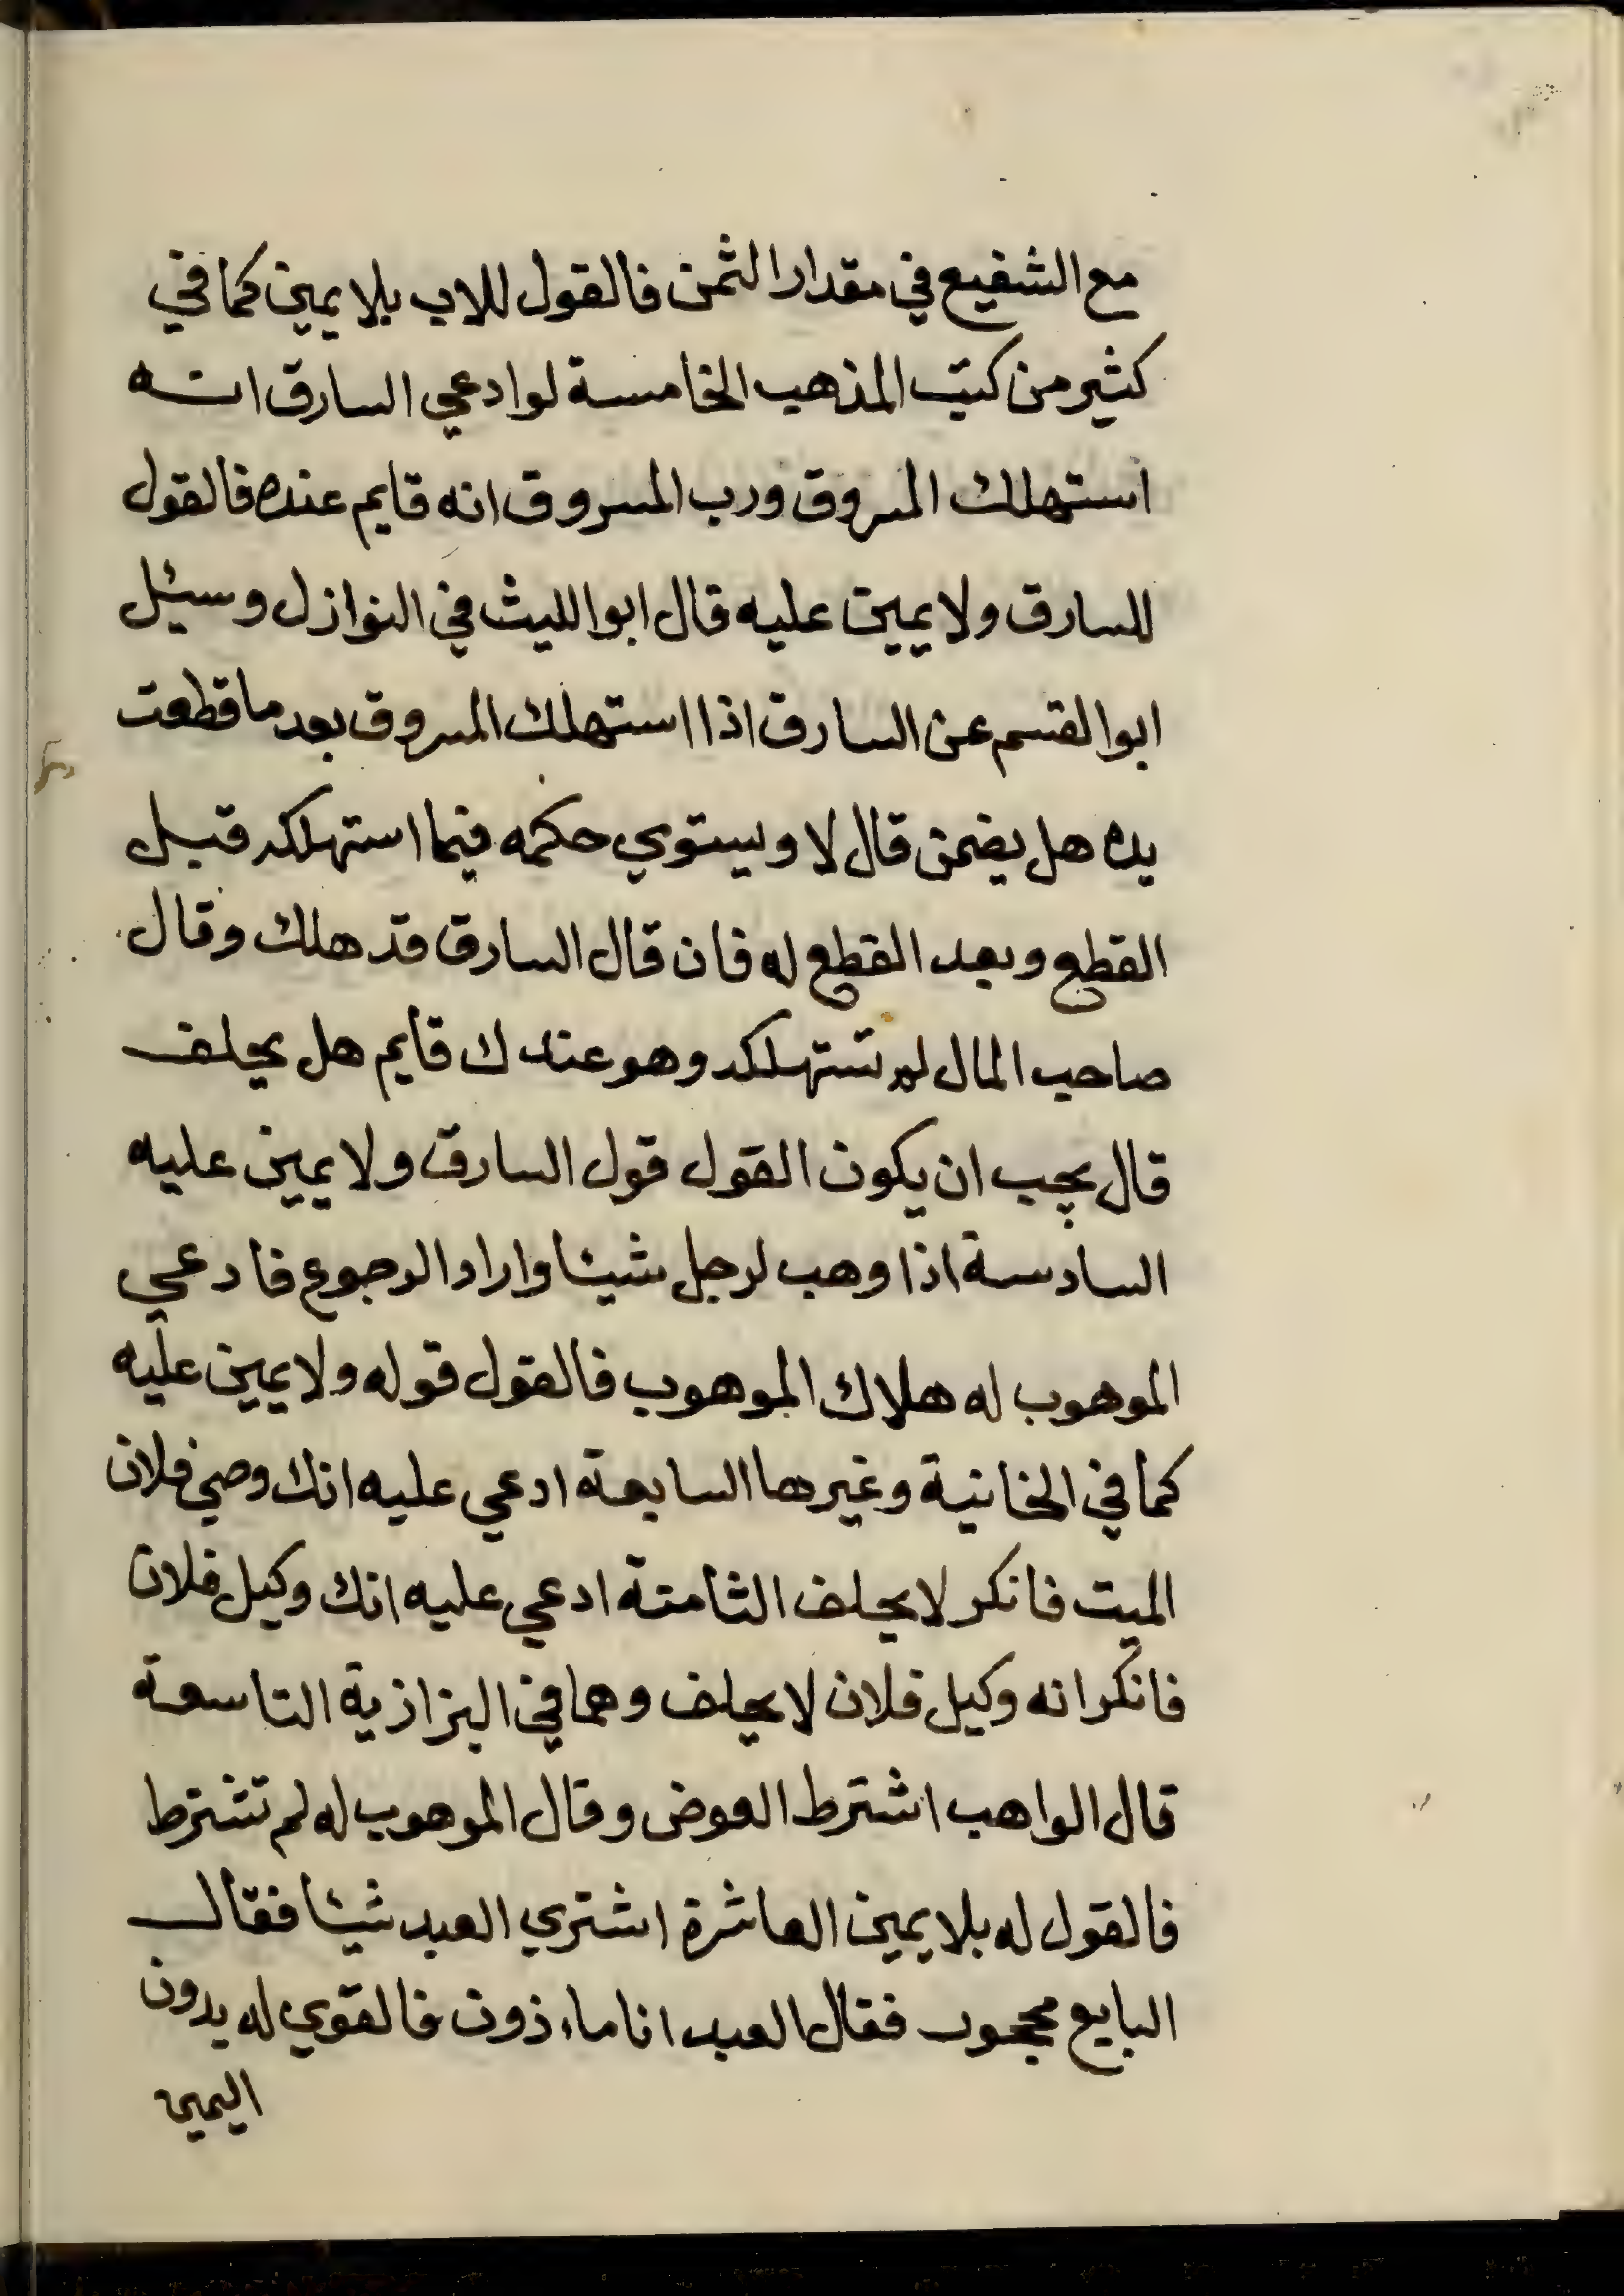 مع الشفيع في مقدار الثمن فالقول للاب بلا يمين كما في
كثير من كتب المذهب الخامسة لو ادعي السارق انه
استهلك المسروق ورب المسروق انه قايم عنده فالقول
للسارق ولا يمين عليه قال ابو الليث في النوازل وسيئل
ابو القسم عن السارق اذا استهلك المسروق بعد ما قطعت
يده هل يضمن قال لا ويستوي حكمه فيما استهلكه قبل
القطع وبعد القطع له فان قال السارق قد هلك وقال
صاحب المال لم تستهلكه وهو عندك قايم هل يحلف
قال يجب ان يكون القول قول السارق ولا يمين عليه
السادسة اذا وهب لرجل شيئا واراد الرجوع فادعي
الموهوب له هلاك الموهوب فالقول قوله ولا يمين عليه
كما في الخانية وغيرها السابعة ادعي عليه انك وصي فلان
الميت فانكر لا يحلف الثامنة ادعي عليه انك وكيل فلان
فانكر انه وكيل فلان لا يحلف وهما في البزازية التاسعة
قال الواهب اشترط العوض وقال الموهوب له لم تشترط
فالقول له بلا يمين العاشرة اشتري العبد شيئا فقال
البايع محجور فقال العبد انا ماءذون فالقوي له بدون
اليمين